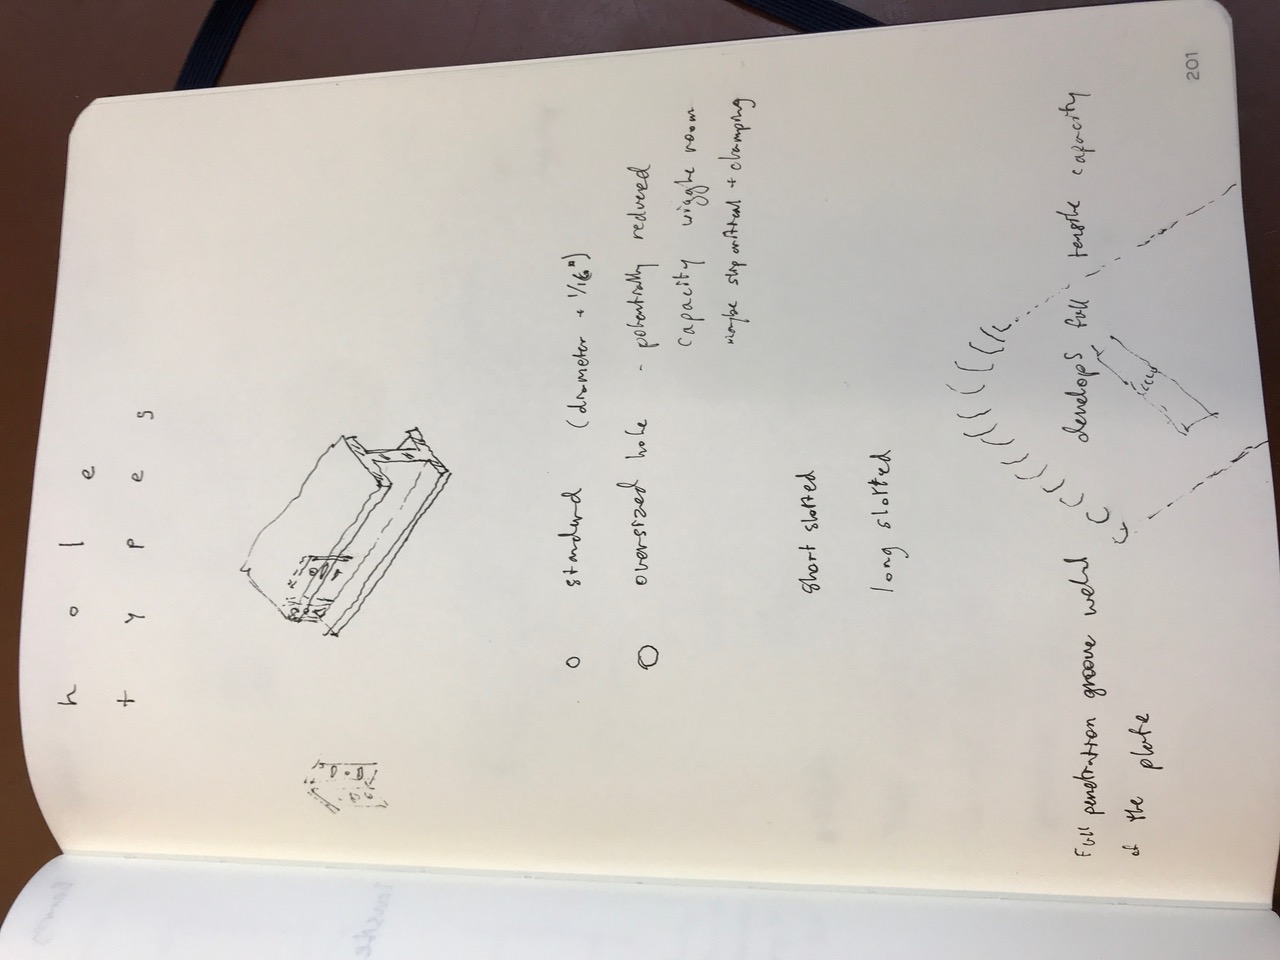 hole
types
standard (diameter + 1/16")
oversized hole - potentially reduced
capacity wiggle room
maybe slip critical + clamping
short slotted
long slotted
Full penetration groove weld develops full tensile capacity
of the plate
201